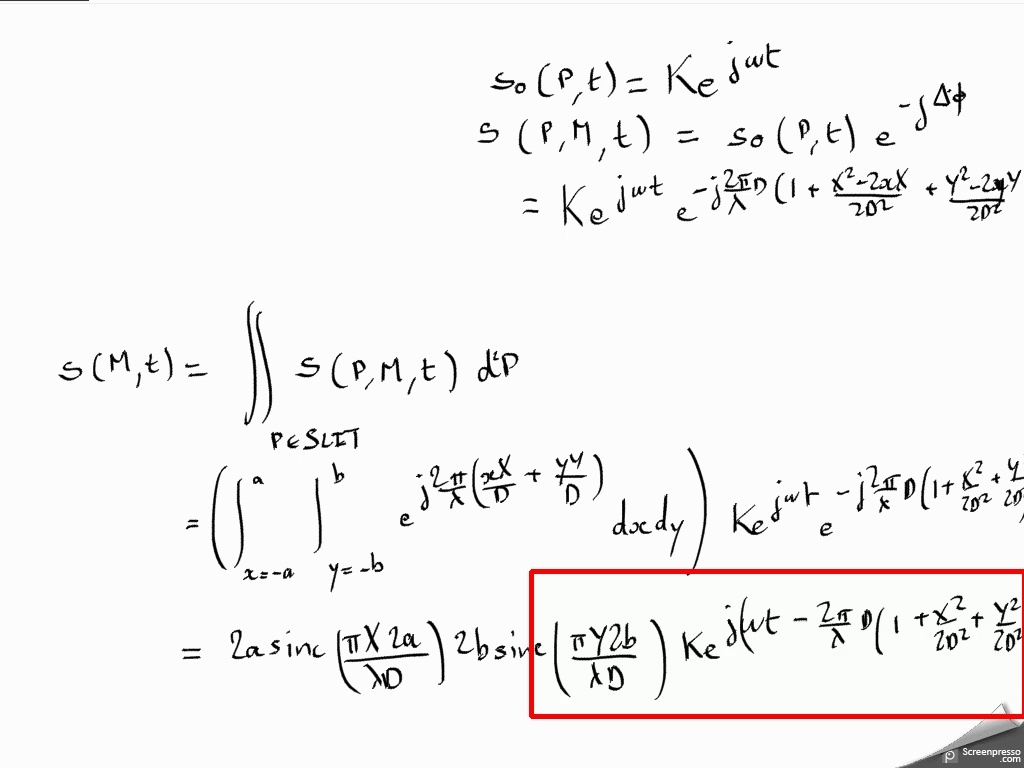 s₀(P,t) = Ke^{jωt}
s(P,M,t) = s₀(P,t) e^{-jΔφ}
= Ke^{jωt} e^{-j\frac{2π}{λ}D(1 + \frac{X²-2xX}{2D²} + \frac{Y²-2yY}{2D²}}
s(M,t) = ∬ s(P,M,t) d²P
P∈SLIT
= (∫_{x=-a}^{a} ∫_{y=-b}^{b} e^{j\frac{2π}{λ}(\frac{xX}{D} + \frac{yY}{D})} dxdy) Ke^{jωt} e^{-j\frac{2π}{λ}D(1+\frac{X²}{2D²}+\frac{Y²}{2D²}}
= 2a sinc(\frac{πX2a}{λD}) 2b sinc(\frac{πY2b}{λD}) Ke^{j(ωt - \frac{2π}{λ}D(1+\frac{X²}{2D²}+\frac{Y²}{2D²}}
Screenpresso
.com